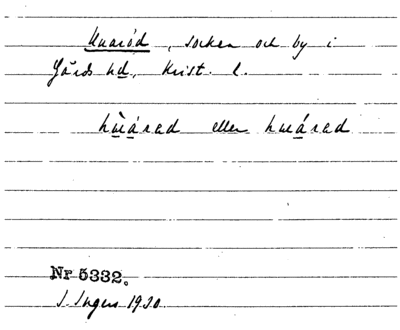 Huaröd, socken och by i
Gärds hd, Krist. l.
hẁárad eller hwárad
Nr 5332.
I. Ingers 1930